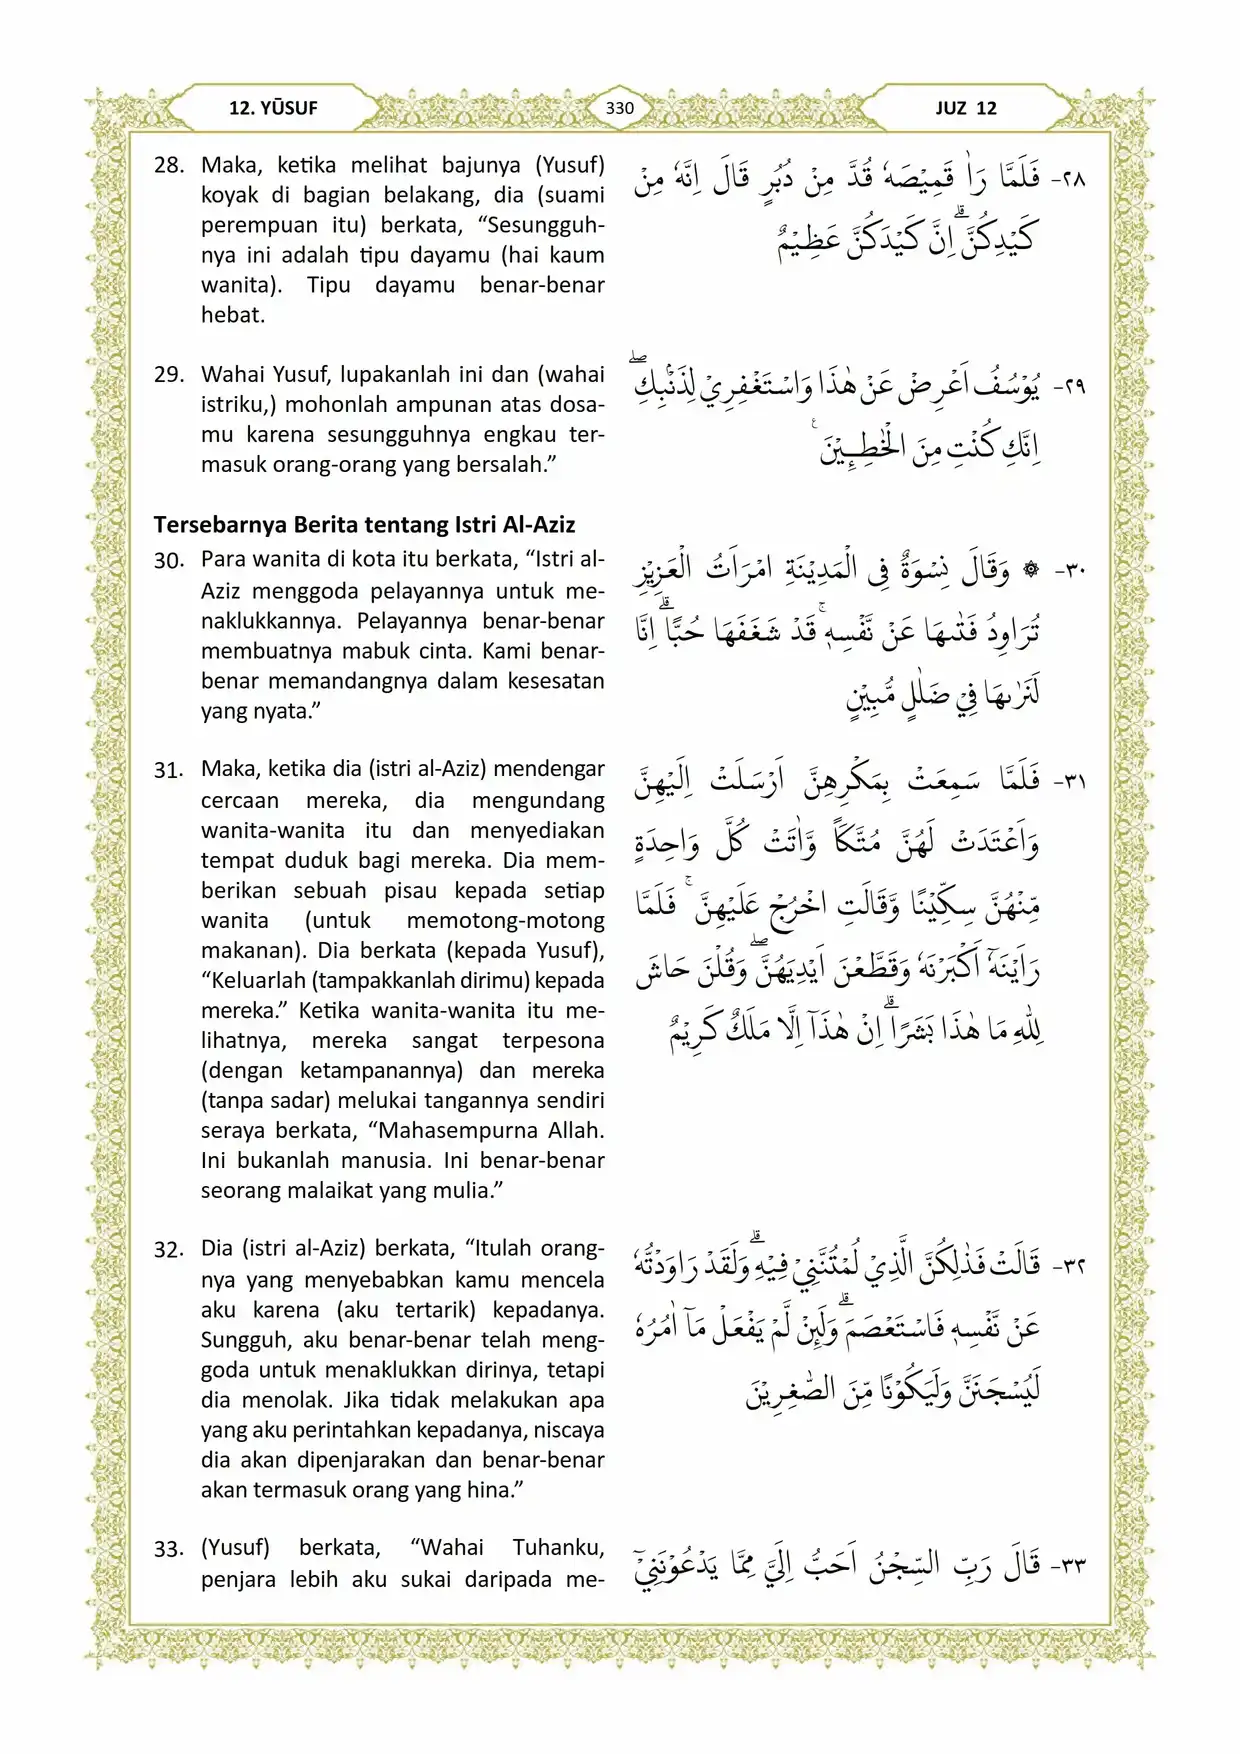 12. YŪSUF
330
JUZ 12
28. Maka, ketika melihat bajunya (Yusuf)
koyak di bagian belakang, dia (suami
perempuan itu) berkata, “Sesungguh-
nya ini adalah tipu dayamu (hai kaum
wanita). Tipu dayamu benar-benar
hebat.
٢٨- فَلَمَّا رَاٰ قَمِيْصَهٗ قُدَّ مِنْ دُبُرٍ قَالَ اِنَّهٗ مِنْ
كَيْدِكُنَّ ۗاِنَّ كَيْدَكُنَّ عَظِيْمٌ
29. Wahai Yusuf, lupakanlah ini dan (wahai
istriku,) mohonlah ampunan atas dosa-
mu karena sesungguhnya engkau ter-
masuk orang-orang yang bersalah.”
٢٩- يُوْسُفُ اَعْرِضْ عَنْ هٰذَا وَاسْتَغْفِرِيْ لِذَنْۢبِكِۖ
اِنَّكِ كُنْتِ مِنَ الْخٰطِـِٕيْنَ ࣖ
Tersebarnya Berita tentang Istri Al-Aziz
30. Para wanita di kota itu berkata, “Istri al-
Aziz menggoda pelayannya untuk me-
naklukkannya. Pelayannya benar-benar
membuatnya mabuk cinta. Kami benar-
benar memandangnya dalam kesesatan
yang nyata.”
٣٠- ۞ وَقَالَ نِسْوَةٌ فِى الْمَدِيْنَةِ امْرَاَتُ الْعَزِيْزِ
تُرَاوِدُ فَتٰىهَا عَنْ نَّفْسِهٖۚ قَدْ شَغَفَهَا حُبًّاۗ اِنَّا
لَنَرٰىهَا فِيْ ضَلٰلٍ مُّبِيْنٍ
31. Maka, ketika dia (istri al-Aziz) mendengar
cercaan mereka, dia mengundang
wanita-wanita itu dan menyediakan
tempat duduk bagi mereka. Dia mem-
berikan sebuah pisau kepada setiap
wanita (untuk memotong-motong
makanan). Dia berkata (kepada Yusuf),
“Keluarlah (tampakkanlah dirimu) kepada
mereka.” Ketika wanita-wanita itu me-
lihatnya, mereka sangat terpesona
(dengan ketampanannya) dan mereka
(tanpa sadar) melukai tangannya sendiri
seraya berkata, “Mahasempurna Allah.
Ini bukanlah manusia. Ini benar-benar
seorang malaikat yang mulia.”
٣١- فَلَمَّا سَمِعَتْ بِمَكْرِهِنَّ اَرْسَلَتْ اِلَيْهِنَّ
وَاَعْتَدَتْ لَهُنَّ مُتَّكَاً وَّاٰتَتْ كُلَّ وَاحِدَةٍ
مِّنْهُنَّ سِكِّيْنًا وَّقَالَتِ اخْرُجْ عَلَيْهِنَّ ۚ فَلَمَّا
رَاَيْنَهٗٓ اَكْبَرْنَهٗ وَقَطَّعْنَ اَيْدِيَهُنَّۖ وَقُلْنَ حَاشَ
لِلّٰهِ مَا هٰذَا بَشَرًاۗ اِنْ هٰذَآ اِلَّا مَلَكٌ كَرِيْمٌ
32. Dia (istri al-Aziz) berkata, “Itulah orang-
nya yang menyebabkan kamu mencela
aku karena (aku tertarik) kepadanya.
Sungguh, aku benar-benar telah meng-
goda untuk menaklukkan dirinya, tetapi
dia menolak. Jika tidak melakukan apa
yang aku perintahkan kepadanya, niscaya
dia akan dipenjarakan dan benar-benar
akan termasuk orang yang hina.”
٣٢- قَالَتْ فَذٰلِكُنَّ الَّذِيْ لُمْتُنَّنِيْ فِيْهِ ۗوَلَقَدْ رَاوَدْتُّهٗ
عَنْ نَّفْسِهٖ فَاسْتَعْصَمَ ۗوَلَىِٕنْ لَّمْ يَفْعَلْ مَآ اٰمُرُهٗ
لَيُسْجَنَنَّ وَلَيَكُوْنًا مِّنَ الصّٰغِرِيْنَ
33. (Yusuf) berkata, “Wahai Tuhanku,
penjara lebih aku sukai daripada me-
٣٣- قَالَ رَبِّ السِّجْنُ اَحَبُّ اِلَيَّ مِمَّا يَدْعُوْنَنِيْٓ